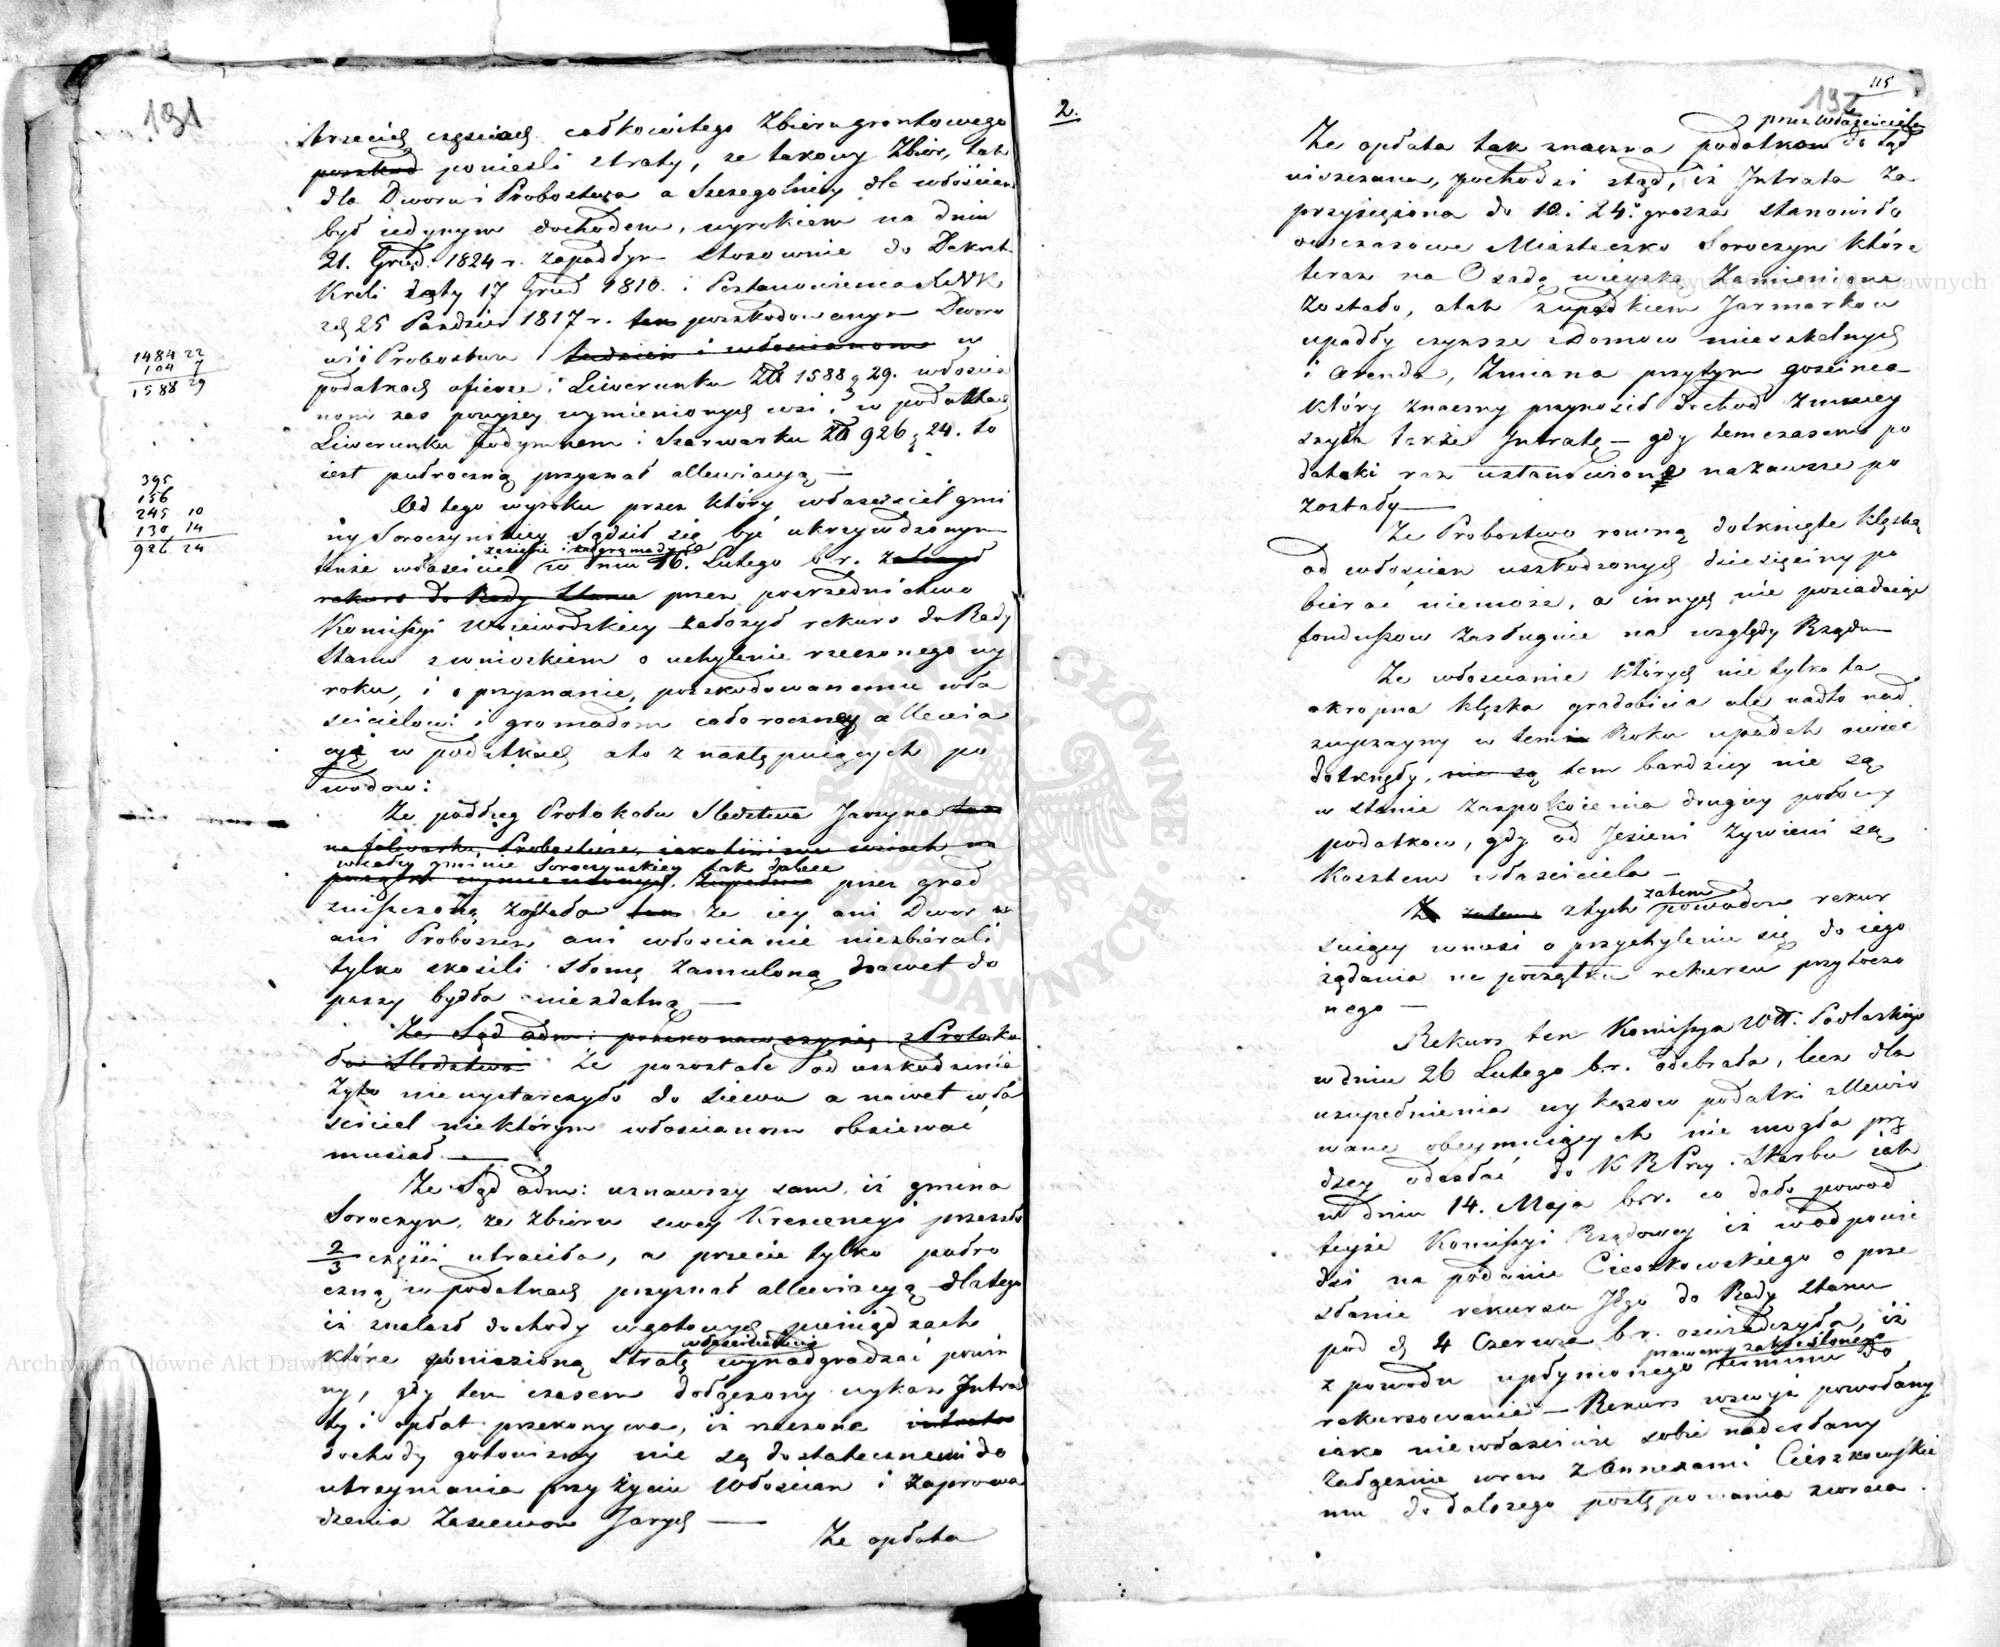 191
trzecich częściach całkowitego Zbioru gruntowego
poszkod ponieśli straty, że takowy Zbior, tak
dla Dworu i Probostwa a Szczegolniey dla włościan
był iedynym dochodem, wyrokiem na dniu
21. Grud. 1824 r. zapadłym stosownie do Dekret
Kroli daty 17 Grud 1810. i Postanowienia XNK
z d 25 Pazdzier 1817 r. tak poszkodowanym Dworo
wi i Probostwu tudzież i włościanom w
podatkach ofierze i Liwerunku Zł 1588 g 29. włościa
nom zas powyżey wymienionych wsi, w podatkach
Liwerunku podymnem i Szarwarku Zł 926 g 24. to
iest pułroczną przyznał allewiacyą —
1484 22
104 7
1588 29
395
156
245 10
130 14
926 24
Od tego wyroku przez który właściciel gmi
ny Soroczynskiey Sądził się być ukrzywdzonym
zasięzie i za gromady
tenże właściciel w dniu 16. Lutego b.r. założył
rekurs do Rady Stanu przez posrzednictwo
Komissyi Woiewodzkiey założył rekurs do Rady
Stanu z wnioskiem o uchylenie rzeczonego wy
roku, i o przyznanie, poszkodowanemu wła
scicielowi i gromadom całoroczney allewia
cyą w podatkach a to z następuiących po
wodow:
Ze podług Protokołu Sledztwa Jarzyna tak
na folwarku, Probostwie, iakotéż we wsiach na
wcałey gminie Soroczynskiey tak dalece
początku wymienionych, zupełnie przez grad
zniszczoną została tak że iey ani Dwor
ani Proboszcz ani włościanie niezbiérali
tylko skosili słomę zamuloną nawet do
paszy bydła niezdatną —
Ze Sąd adm: przekonawszy się z Protoko
łu Sledztwa Ze pozostałe od uszkodzenia
Zyto niewystarczyło do siewu a nawet wła
sciciel niektórym włoscianom obsiewać
musiał —
Ze Sąd adm: uznawszy sam, iż gmina
Soroczyn, ze zbioru swey Krescencyi przeszło
2/3 częsci utraciła, a przecie tylko pułro
czną w podatkach przyznał allewiacyą dlatego
iż znalazł dochody w gotowych pieniądzach
właścicielowi
które poniesioną Stratę wynadgradzać powin
ny, gdy tem czasem dołączony wykaz Intra
ty i opłat przekonywa, iż rzeczone intrata
dochody gotowizny nie są dostatecznemi do
utrzymania przy życiu Włościan i zaprowa
dzenia Zasiewow Jarych —
Ze opłata
2.
115
192
przez Właściciela
Ze opłata tak znaczna podatkow do tąd
uiszczana, pochodzi ztąd, iż Intrata za
przysiężona do 10. i 24. grosza stanowiła
owczasowe Miasteczko Soroczyn które
teraz na Osadę wieyską zamienione
zostało, a tak z upadkiem Jarmarkow
upadły czynsze z Domow mieszkalnych
i arenda, Zmiana przytym gościnca
który znaczny przynosił dochod zmniey
szyła także Intratę — gdy tem czasem po
datki raz ustanowione na zawsze po
zostały —
Ze Probostwo rowną dotknięte klęską
od włościan uszkodzonych dziesięciny po
bierać niemoże, a innych nie posiadaiąc
funduszow zasługuie na względy Rządu
Ze włoscianie których nie tylko ta
okropna klęska gradobicia ale nadto nad
zwyczayny w tem Roku upadek owiec
dotknęły, nie są tem bardziey nie są
w stanie zaspokoienia drugiey połowy
podatkow, gdy od Jesieni żywieni są
Kosztem właściciela —
zatem
Z zatem z tych powodow rekur
suiący wnosi o przychylenie się do iego
żądania na początku rekursu przytoczo
nego —
Rekurs ten Komissya Wtt: Podlaskiego
w dniu 26 Lutego b.r. odebrała, lecz dla
uzupełnienia wykazow podatki allewio
wane obeymuiących nie mogła prę
dzey odesłać do K R Prz. Skarbu iak
w dniu 14. Maja b.r. co dało powod
teyże Komissyi Rządowey iż w odpowie
dzi na podanie Cieszkowskiego o prze
słanie rekursu Jego do Rady Stanu
pod d 4 Czerwca b.r. oswiadczyła, iż
prawem zakreślonego
z powodu upłynionego terminu do
rekursowania — Rekurs wzwyż powołany
iako niewłaściwie sobie nadesłany
załącznie wraz z annexami Cieszkowskie
mu do dalszego postępowania zwraca.